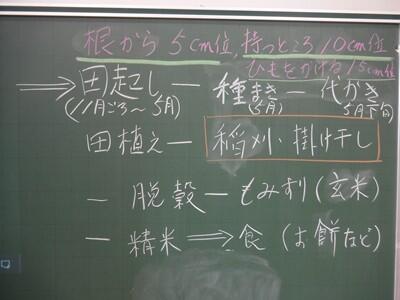 根から5cm位 持つところ10cm位
ひもをかける15cm位
⟹田起し―種まき―代かき
(11月ごろ~5月) (5月) 5月下旬
田植え―稲刈、掛け干し
―脱穀―もみすり(玄米)
―精米⟹食(お餅など)